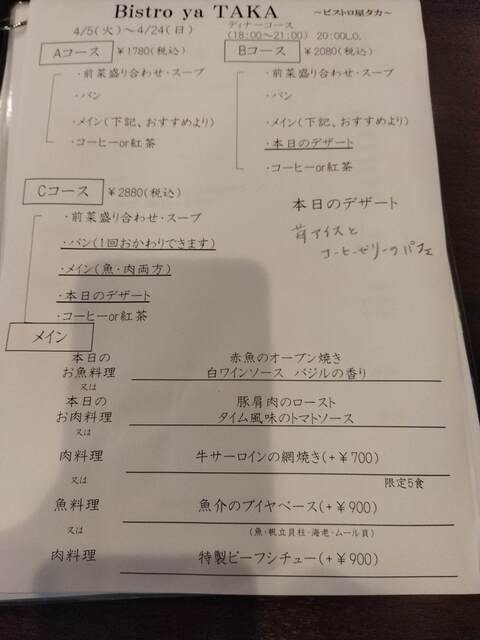 Bistro ya TAKA ～ビストロ屋タカ～
4/5(火)～4/24(日) ディナーコース
(18:00～21:00) 20:00LO.
Aコース ￥1780(税込)
・前菜盛り合わせ・スープ
・パン
・メイン(下記、おすすめより)
・コーヒーor紅茶
Bコース ￥2080(税込)
・前菜盛り合わせ・スープ
・パン
・メイン(下記、おすすめより)
・本日のデザート
・コーヒーor紅茶
Cコース ￥2880(税込)
・前菜盛り合わせ・スープ
・パン(1回おかわりできます)
・メイン(魚・肉両方)
・本日のデザート
・コーヒーor紅茶
本日のデザート
苺アイスと
コーヒーゼリーのパフェ
メイン
本日の
お魚料理
赤魚のオーブン焼き
白ワインソース バジルの香り
又は
本日の
お肉料理
豚肩肉のロースト
タイム風味のトマトソース
又は
肉料理 牛サーロインの網焼き(+￥700)
又は 限定5食
魚料理 魚介のブイヤベース(+￥900)
又は (魚・帆立貝柱・海老・ムール貝)
肉料理 特製ビーフシチュー(+￥900)